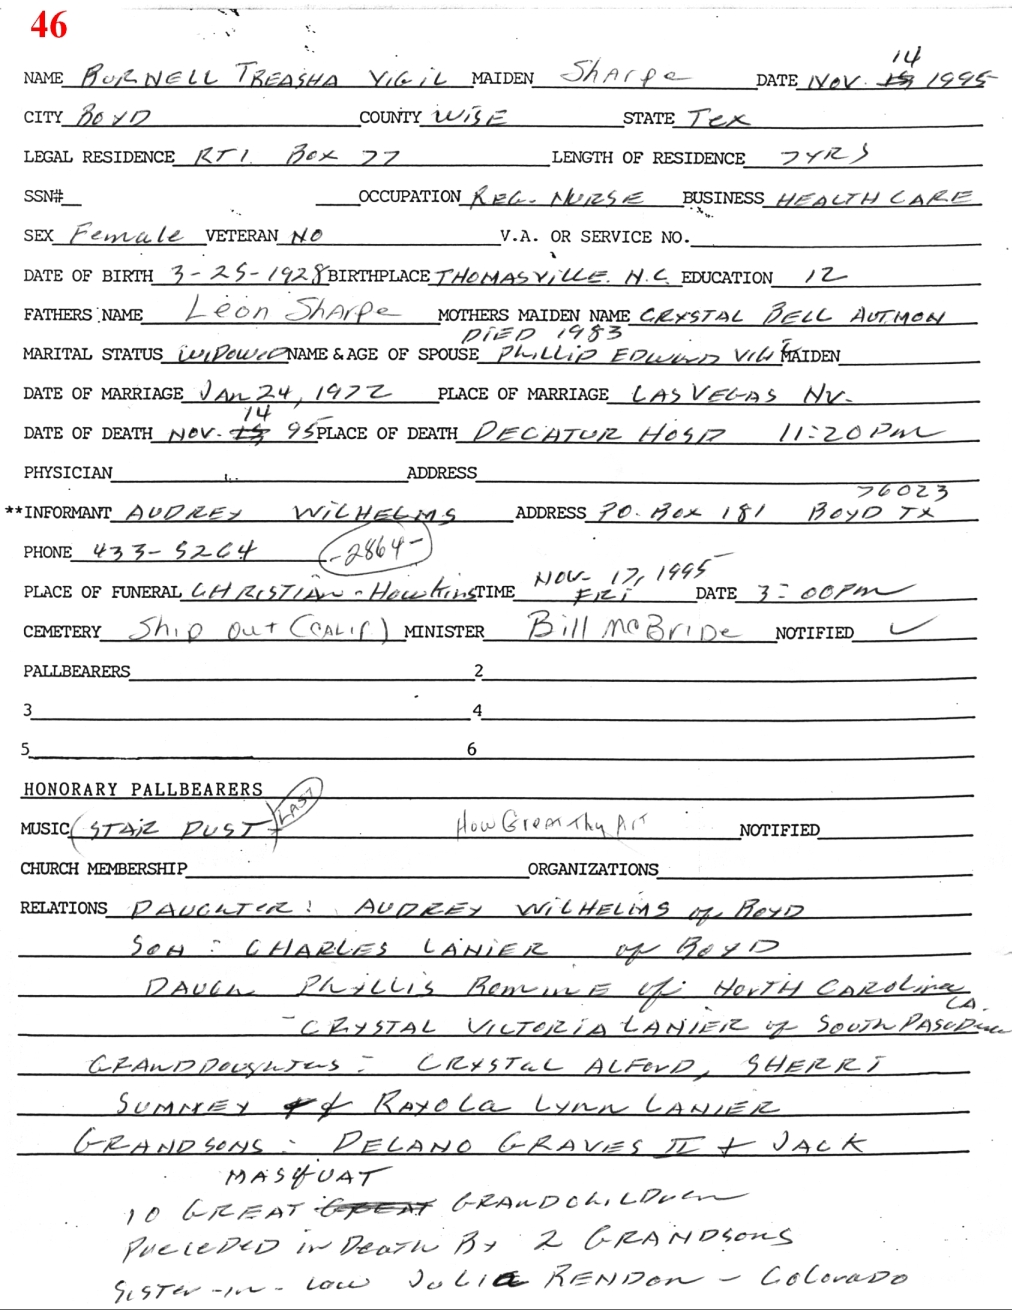 46
14
NAME BURNELL TREASHA VIGIL MAIDEN Sharpe DATE NOV. 15 1995
CITY BOYD COUNTY WISE STATE Tex
LEGAL RESIDENCE RT1 Box 77 LENGTH OF RESIDENCE 7YRS
SSN# OCCUPATION REG. NURSE BUSINESS HEALTH CARE
SEX Female VETERAN NO V.A. OR SERVICE NO.
DATE OF BIRTH 3-25-1928 BIRTHPLACE THOMASVILLE. N.C. EDUCATION 12
FATHERS NAME Leon Sharpe MOTHERS MAIDEN NAME CRYSTAL BELL AUTMON
DIED 1983
MARITAL STATUS WIDOWED NAME & AGE OF SPOUSE PHILLIP EDWARD VIGIL MAIDEN
DATE OF MARRIAGE JAN 24, 1972 PLACE OF MARRIAGE LAS VEGAS NV.
14
DATE OF DEATH NOV. 15 95 PLACE OF DEATH DECATUR HOSP 11:20 PM
PHYSICIAN ADDRESS
76023
**INFORMANT AUDREY WILHELMS ADDRESS P.O. Box 181 BOYD TX
PHONE 433-5264 -2864-
NOV- 17, 1995
PLACE OF FUNERAL CHRISTIAN-Hawkins TIME FRI DATE 3:00PM
CEMETERY Ship out (CALIF) MINISTER Bill McBride NOTIFIED ✓
PALLBEARERS 2
3 4
5 6
HONORARY PALLBEARERS
MUSIC (STAR DUST) LAST How Great Thy Art NOTIFIED
CHURCH MEMBERSHIP ORGANIZATIONS
RELATIONS DAUGHTER: AUDREY WILHELMS of BOYD
SON: CHARLES LANIER of BOYD
DAUGH PHYLLIS ROMINE of NORTH CAROLINA
CA.
- CRYSTAL VICTORIA LANIER of SOUTH PASADENA
GRANDDOUGHTERS: CRYSTAL ALFORD, SHERRI
SUMNEY & RAYOLA LYNN LANIER
GRANDSONS: DELANO GRAVES II + JACK
MASQUAT
10 GREAT GREAT GRANDCHILDREN
PRECEDED in DEATH BY 2 GRANDSONS
SISTER-in-law JULIA RENDON - COLORADO